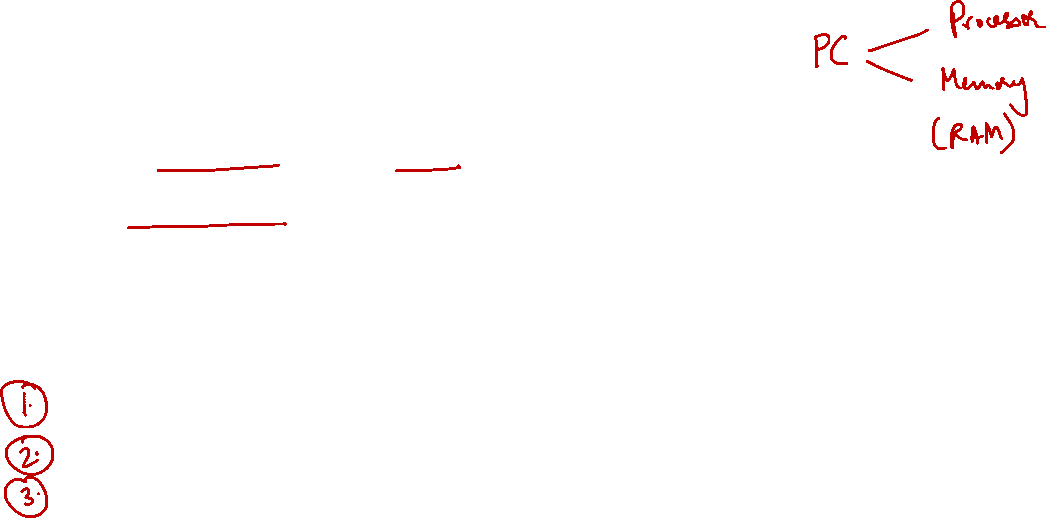 Processor
PC
Memory
(RAM)
1.
2.
3.